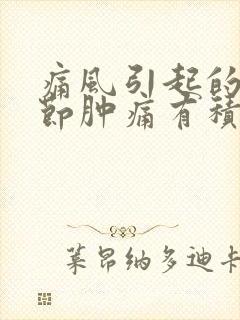 痛风引起的
节肿痛有积
莱昂纳多迪卡